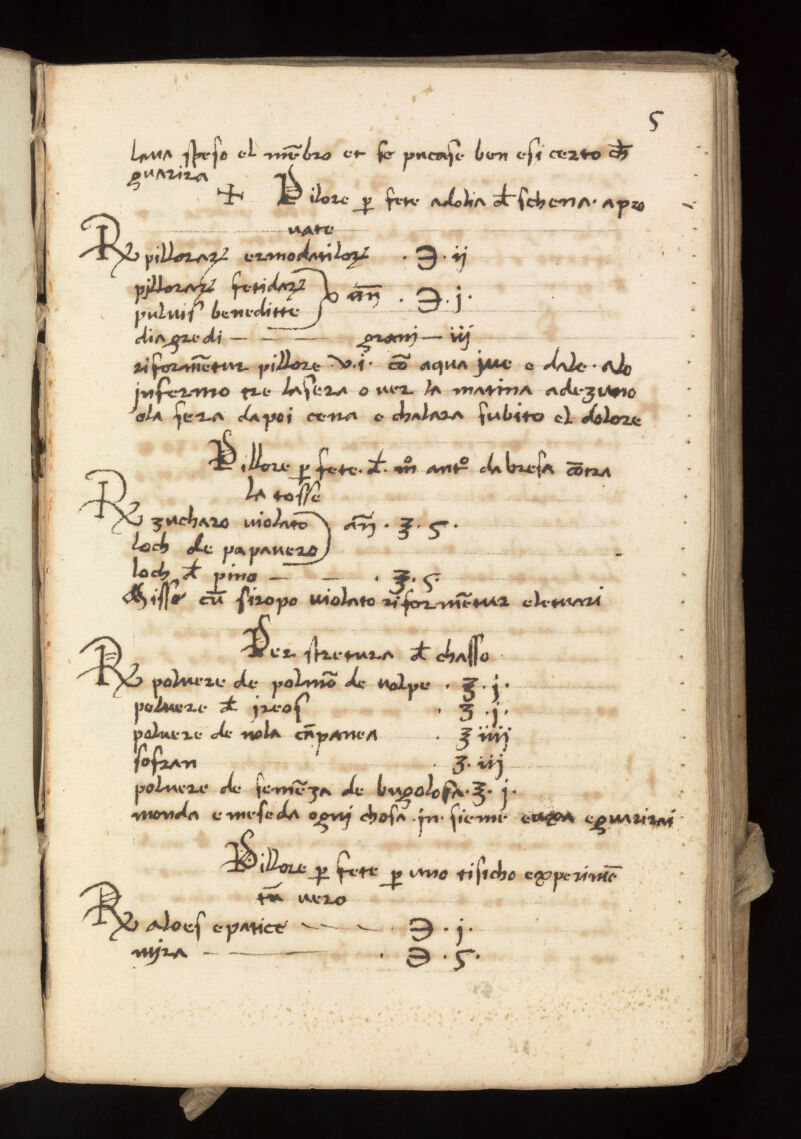 5
laua steso el mēbro et se pucase ben esi certo ch̄
guarira
+ Pilore ꝑ fete adolia đ schena · apro
uate
℞ pillorarꝫ ermodatilorꝫ · ℈ · ij
pillorarꝫ fetidarꝫ
puluis beneditte } an̄ · ℈ · j ·
diagredi — grani — iij
riformētur pillore · v · i · cō aqua jue e dale · alo
jnfermo tre la sera o uer la matina adezuno
ola sera dapoi cena e chalara subito el dolore
Pillore ꝑ fete · đ · mº antº da bresa cōtra
la tosse
℞ zucharo uiolato
loch de papauero } an̄ · ʒ · 5 ·
loch đ pino — · ʒ · 5 ·
Misse cū siropo uiolato riformētur eletuari
Per stretura đ chasso
℞ poluere de polmō de uolpe · ʒ · j ·
poluere đ jreos · ʒ · j ·
poluere de nola cāpanea · ʒ iiij
sofran · ʒ · iij
poluere de semēza de bugolosa · ʒ · j ·
monda e meseda ogni chosa · in · sieme e uxa e guarirai
Pillore ꝑ fete ꝑ uno tisicho experimē
tā uero
℞ aloes epatice — · ℈ · j ·
mira — · ℈ · 5 ·